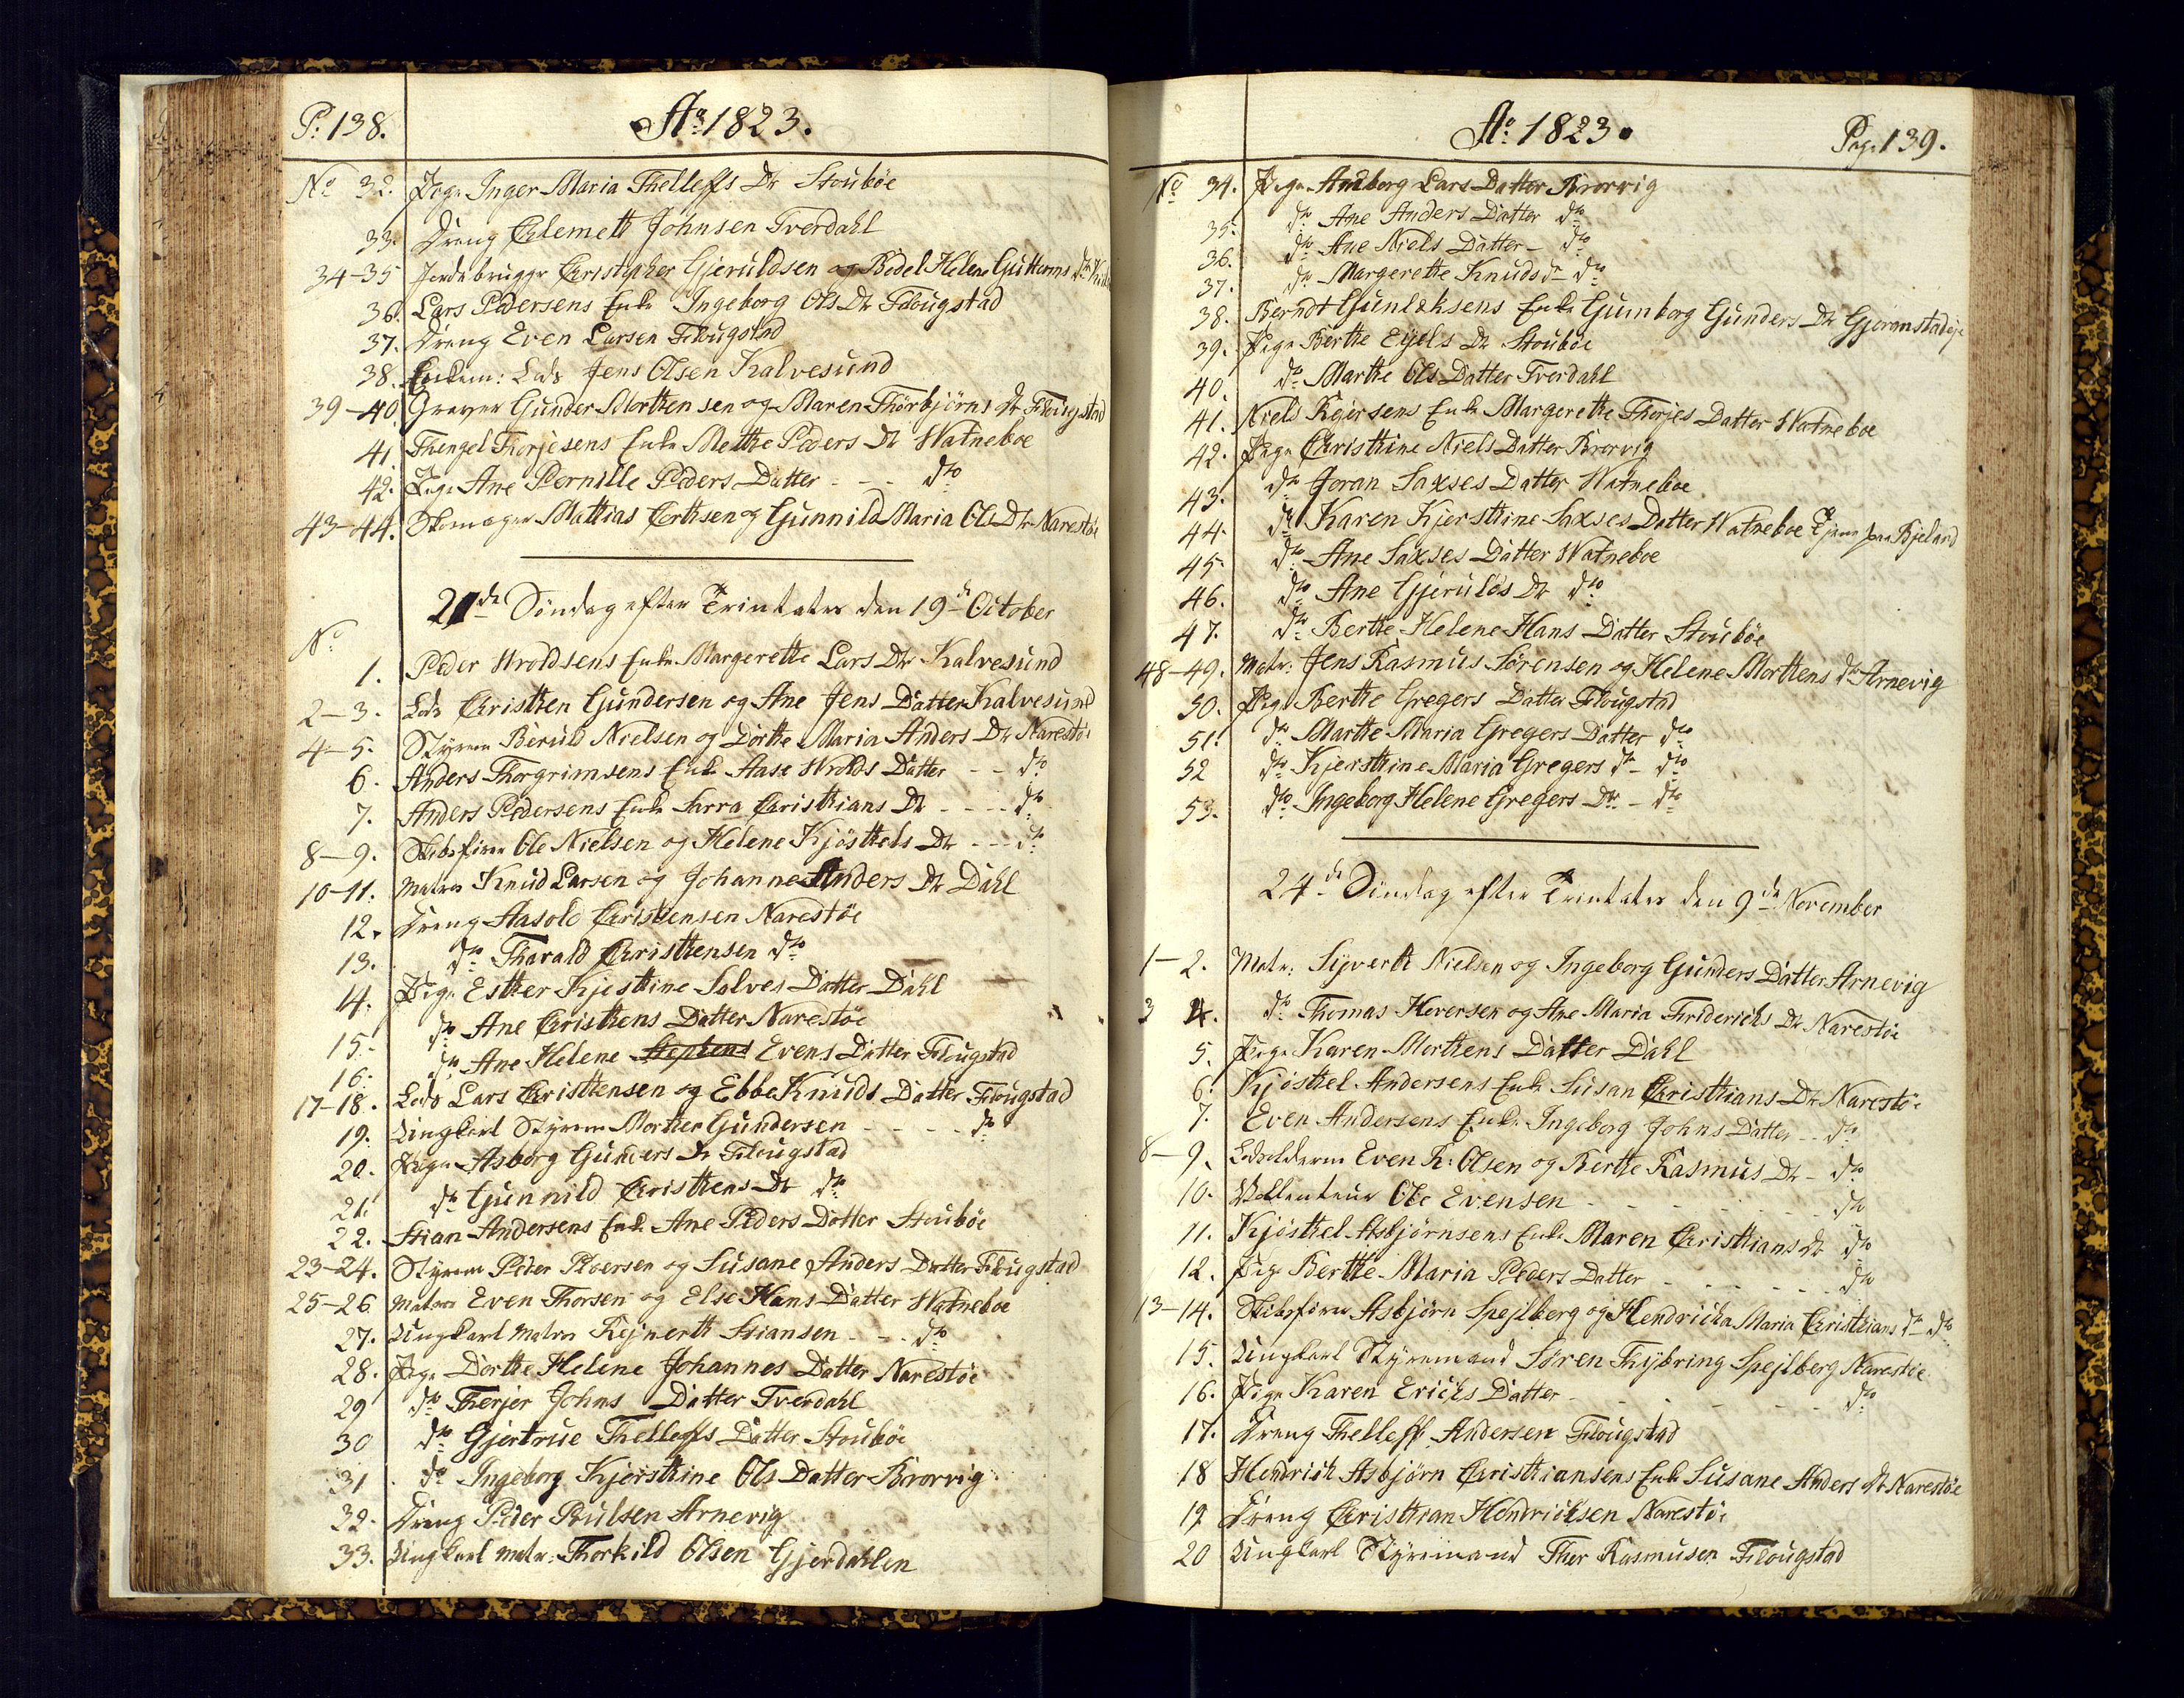 P: 138.
Ao 1823.
No 32. Pige Inger Maria Thelleffs Dr Stoubøe
33. Dreng Chlemett Johnsen Tverdahl
34-35 Jordebruger Christopher Gjeruldsen og Bodel Helene Guttorms Dr
36. Lars Pedersens Enke Ingeborg Ols Dr Flougstad
37. Dreng Even Larsen Flougstad
38. Enkem: Lods Jens Olsen Kalvesund
39-40. Graver Gunder Morthensen og Maren Thorbjørns Dr Flougstad
41 Thengel Thorjesens Enke Methe Peders Dr Watneboe
42. Pige Ane Pernille Peders Datter - - - do
43-44. Skomager Mathias Corthsen og Gunnild Maria Ols Dr Narestøe
21de Søndag efter Trinitatis den 19de October
No
1. Peder Wroldsens Enke Margerethe Lars Dtr Kalvesund
2-3. Lods Christhen Gundersen og Ane Jens Datter Kalvesund
4-5. Styrem Beruld Nielsen og Dorthe Maria Anders Dr Narestøe
6. Anders Thorgrimsens Enke Aase Wrolds Datter - - do
7. Anders Pedersens Enke Sarra Christhians Dr - - - - do
8-9. Skibsfører Ole Nielsen og Helene Kjøsthels Dr - - - do
10-11. Matros Knud Larsen og Johanne Anders Dr Dahl
12. Dreng Aasold Christhensen Narestøe
13. do Tharald Christhensen do
14. Pige Esther Kjesthine Salves Datter Dahl
15. do Ane Christhens Datter Narestøe
16. do Ane Helene Stephens Evens Datter Flougstad
17-18. Lods Lars Christhensen og Ebbe Knuds Datter Flougstad
19. Ungkarl Styrem Morthen Gundersen - - - - do
20. Pige Asborg Gunders Dr Flougstad
21. do Gunnild Christhens Dr do
22. Stian Andersens Enke Ane Peders Datter Stoubøe
23-24. Styrem Peder Roersen og Susane Anders Datter Flougstad
25-26 Matros Even Thorsen og Else Hans Datter Watneboe
27. Ungkarl Matros Rejnerth Stiansen - - - do
28. Pige Dorthe Helene Johannes Datter Narestøe
29 do Therjer Johns Datter Tverdahl
30 do Gjertrue Thelleffs Datter Stoubøe
31 do Ingeborg Kjersthine Ols Datter Brorvig
32. Dreng Peder Poulsen Arnevig
33. Ungkarl Matr: Thorkild Olsen Gjerdahlen
Ao 1823.
Pag. 139.
No 34. Pige Amborg Lars Datter Brorvig
35. do Ane Anders Datter do
36. do Ane Niels Datter - do
37. do Margerethe Knuds Dr do
38. Berndt Gunleksens Enke Gumborg Gunders Dr
39. Pige Berthe Eyels Dr Stoubøe
40. do Marthe Ols Datter Tverdahl
41. Niels Rejersens Enke Margerethe Thorjes Datter Watneboe
42. Pige Christhine Niels Datter Brorvig
43. do Joran Saxses Datter Watneboe
44. do Karen Kjersthine Saxses Datter Watneboe Tjener paa Bjeland
45 do Ane Saxses Datter Watneboe
46. do Ane Gjerulds Dr do
47. do Berthe Helene Hans Datter Stoubøe
48-49. Matr. Jens Rasmus Sørensen og Helene Morthens Dr Arnevig
50. Pige Berthe Gregers Datter Flougstad
51. do Marthe Maria Gregers Datter do
52 do Kjersthine Maria Gregers Dr - do
53. do Ingeborg Helene Gregers Dr - do
24de Søndag efter Trinitatis den 9de November
1-2. Matr: Syverth Nielsen og Ingeborg Gunders Datter Arnevig
3 4. do Thomas Heversen og Ane Maria Friderichs Dr Narestøe
5. Pige Karen Morthens Datter Dahl
6. Kjøsthel Andersens Enke Susan Christhians Dr Narestøe
7. Even Andersens Enke Ingeborg Johns Datter - - do
8-9. Lodsolderm Even R: Olsen og Berthe Rasmus Dr - do
10. Vollenteur Ole Evensen - - - - - - do
11. Kjøsthel Asbjørnsens Enke Maren Christhians Dr do
12. Pige Berthe Maria Peders Datter - - - - do
13-14. Skibsfører Asbjørn Spejlberg og Hendricha Maria Christhians Dr do
15. Ungkarl Styremand Søren Thybring Spejlberg Narestøe
16. Pige Karen Erichs Datter - - - - - do
17. Dreng Thelleff Andersen Flougstad
18 Hendrich Asbjørn Christhiansens Enke Susane Anders Dr Narestøe
19 Dreng Christhian Hendrichsen Narestøe
20 Ungkarl Styremand Ther Rasmusen Flougstad